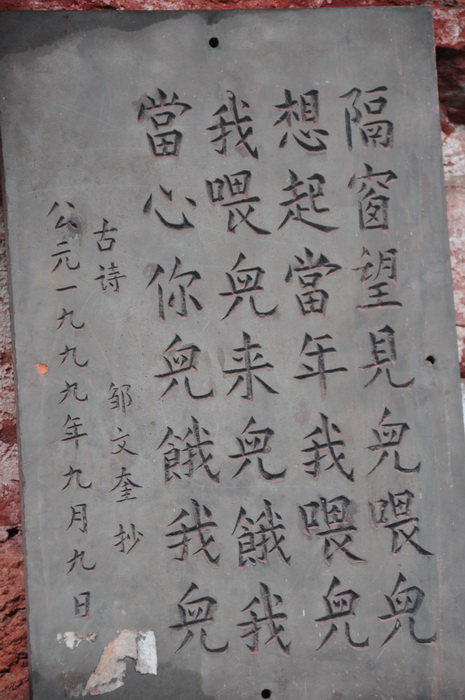 隔窗望見兒喂兒
想起當年我喂兒
我喂兒来兒餓我
當心你兒餓我兒
古诗 邹文奎抄
公元一九九九年九月九日